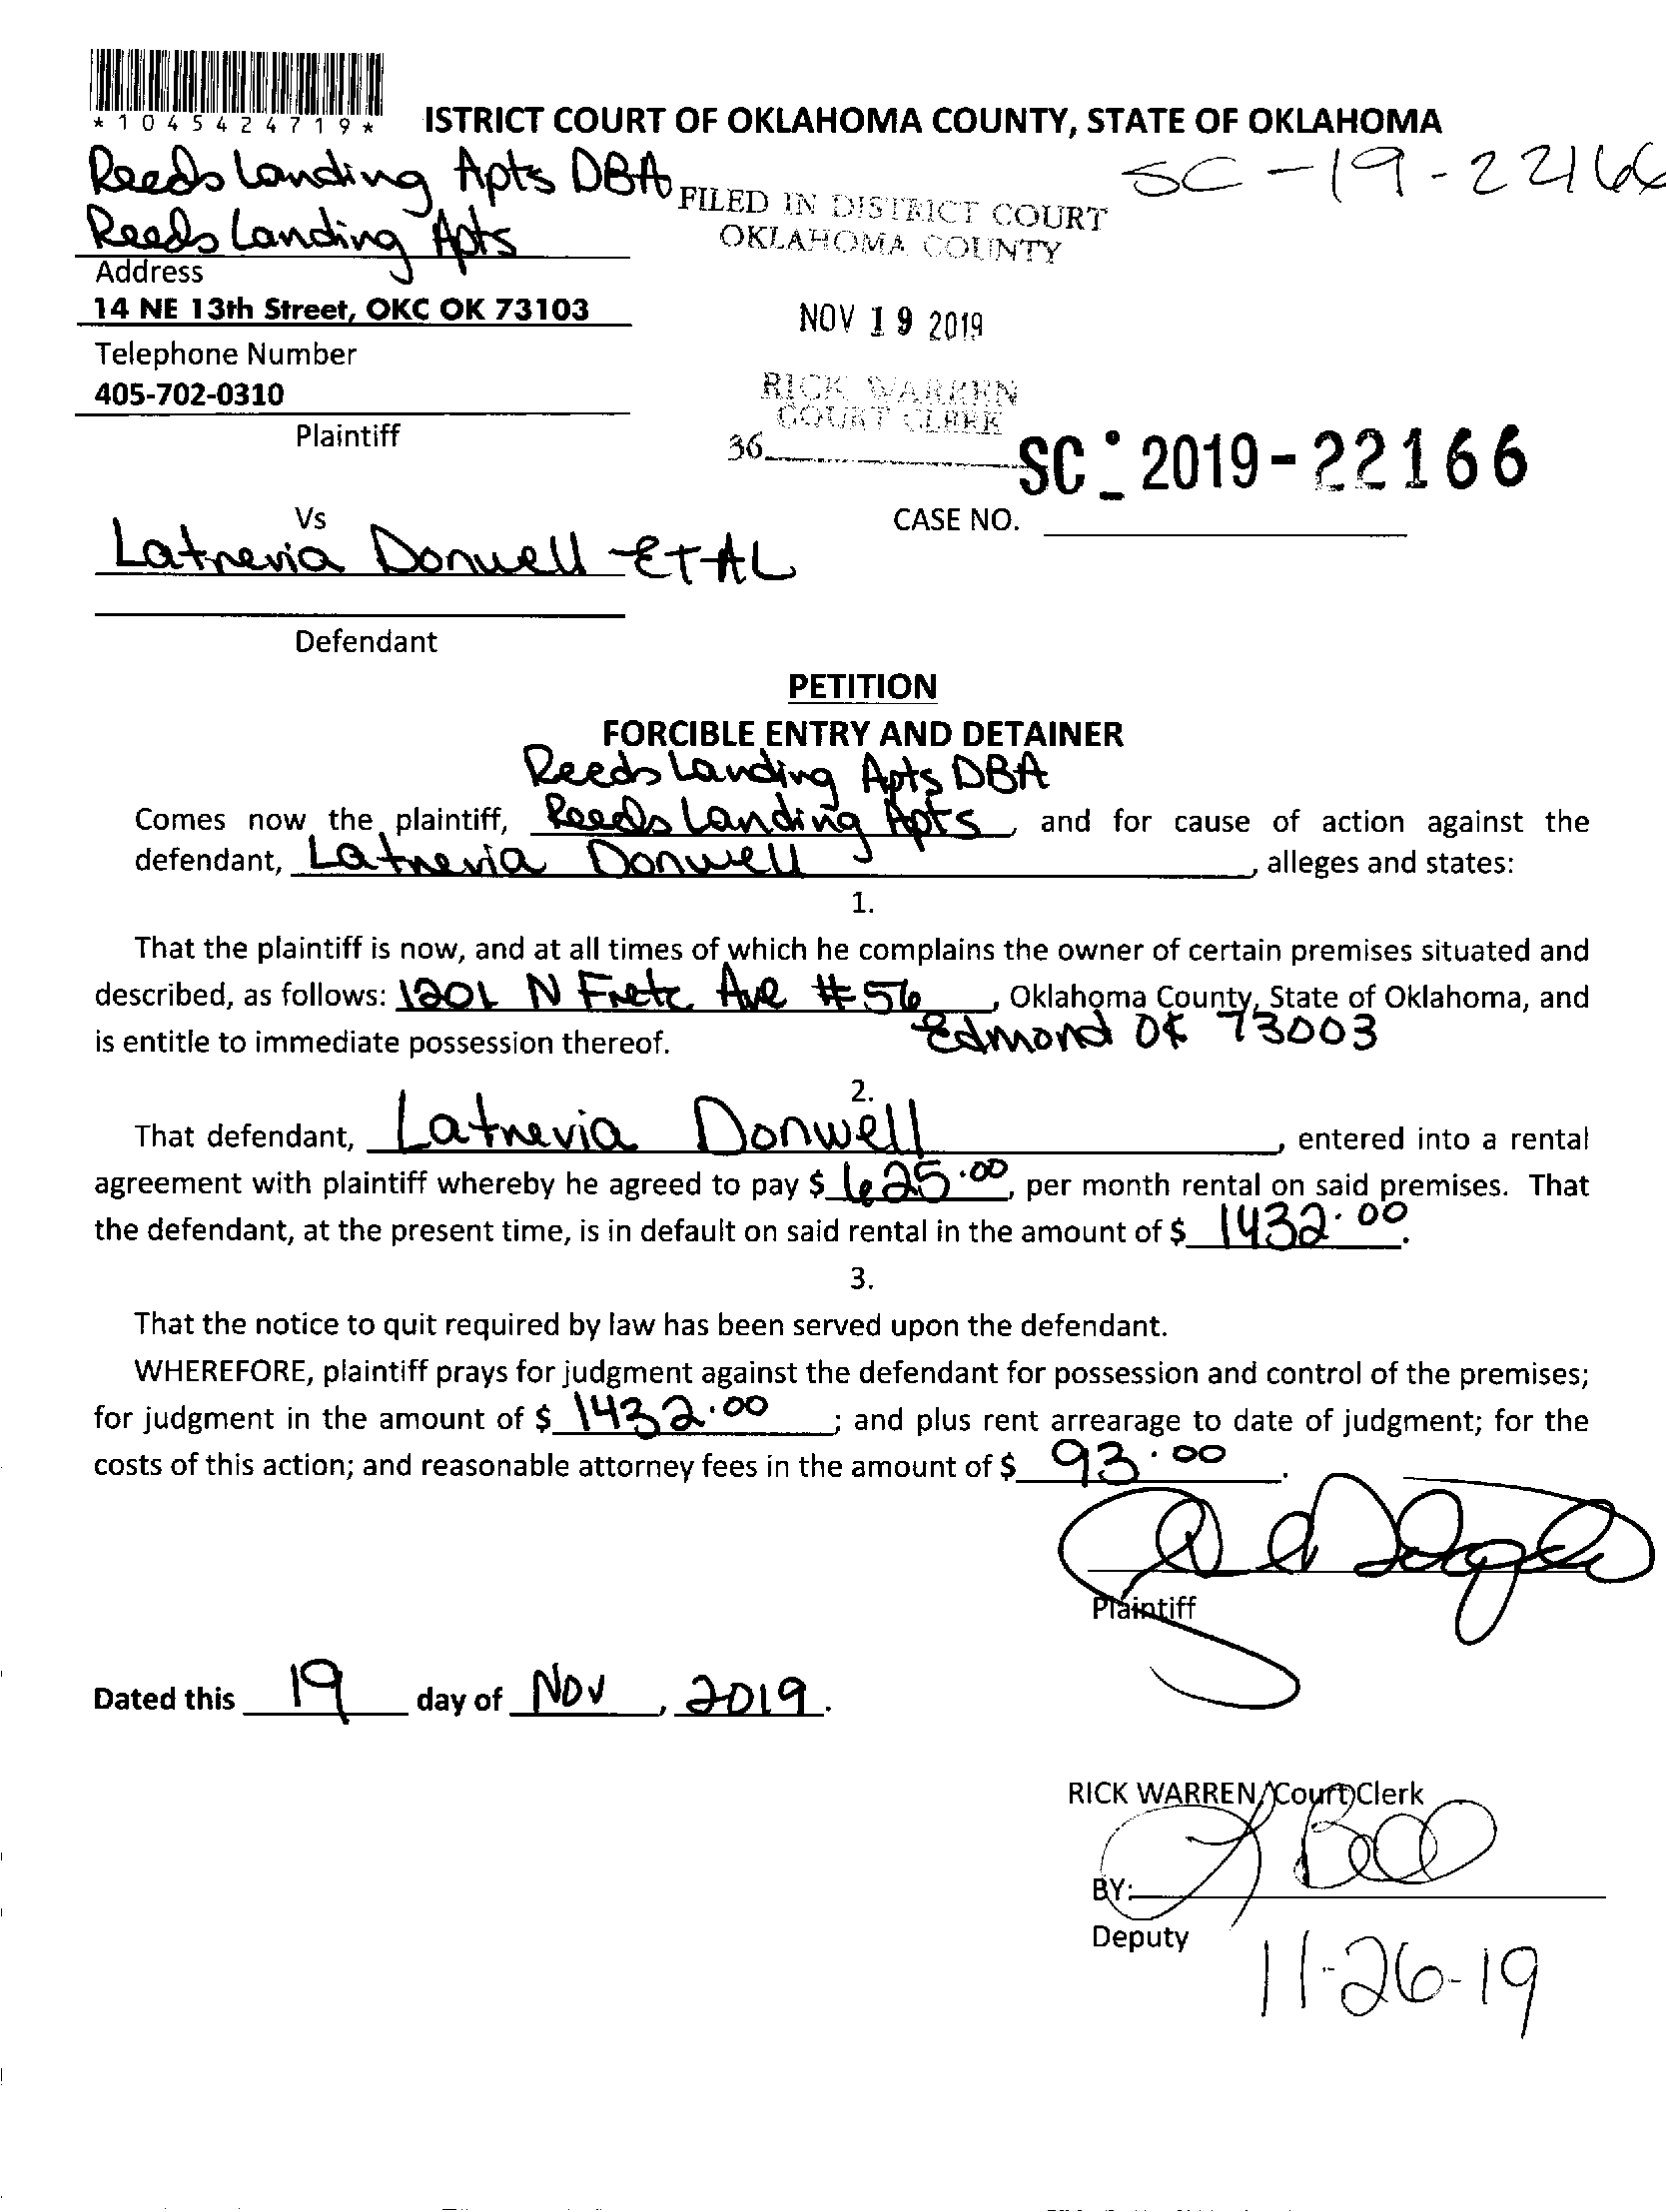 *1045424719*
ISTRICT COURT OF OKLAHOMA COUNTY, STATE OF OKLAHOMA
SC-19-22166
Reeds Landing Apts DBA
Reeds Landing Apts
FILED IN DISTRICT COURT
OKLAHOMA COUNTY
Address
14 NE 13th Street, OKC OK 73103
NOV 19 2019
Telephone Number
405-702-0310
RICK WARREN
COURT CLERK
Plaintiff
36
SC - 2019-22166
Vs
CASE NO.
Latrevia Donwell -ET-AL
Defendant
PETITION
FORCIBLE ENTRY AND DETAINER
Reeds Landing Apts DBA
Comes now the plaintiff, Reeds Landing Apts, and for cause of action against the
defendant, Latrevia Donwell, alleges and states:
1.
That the plaintiff is now, and at all times of which he complains the owner of certain premises situated and
described, as follows: 1201 N Fretz Ave #56, Oklahoma County, State of Oklahoma, and
Edmond OK 73003
is entitle to immediate possession thereof.
2.
That defendant, Latrevia Donwell, entered into a rental
agreement with plaintiff whereby he agreed to pay $ 625.00, per month rental on said premises. That
the defendant, at the present time, is in default on said rental in the amount of $ 1432.00.
3.
That the notice to quit required by law has been served upon the defendant.
WHEREFORE, plaintiff prays for judgment against the defendant for possession and control of the premises;
for judgment in the amount of $ 1432.00; and plus rent arrearage to date of judgment; for the
costs of this action; and reasonable attorney fees in the amount of $ 93.00.
Plaintiff
Dated this 19 day of Nov, 2019.
RICK WARREN, Court Clerk
BY:
Deputy
11-26-19